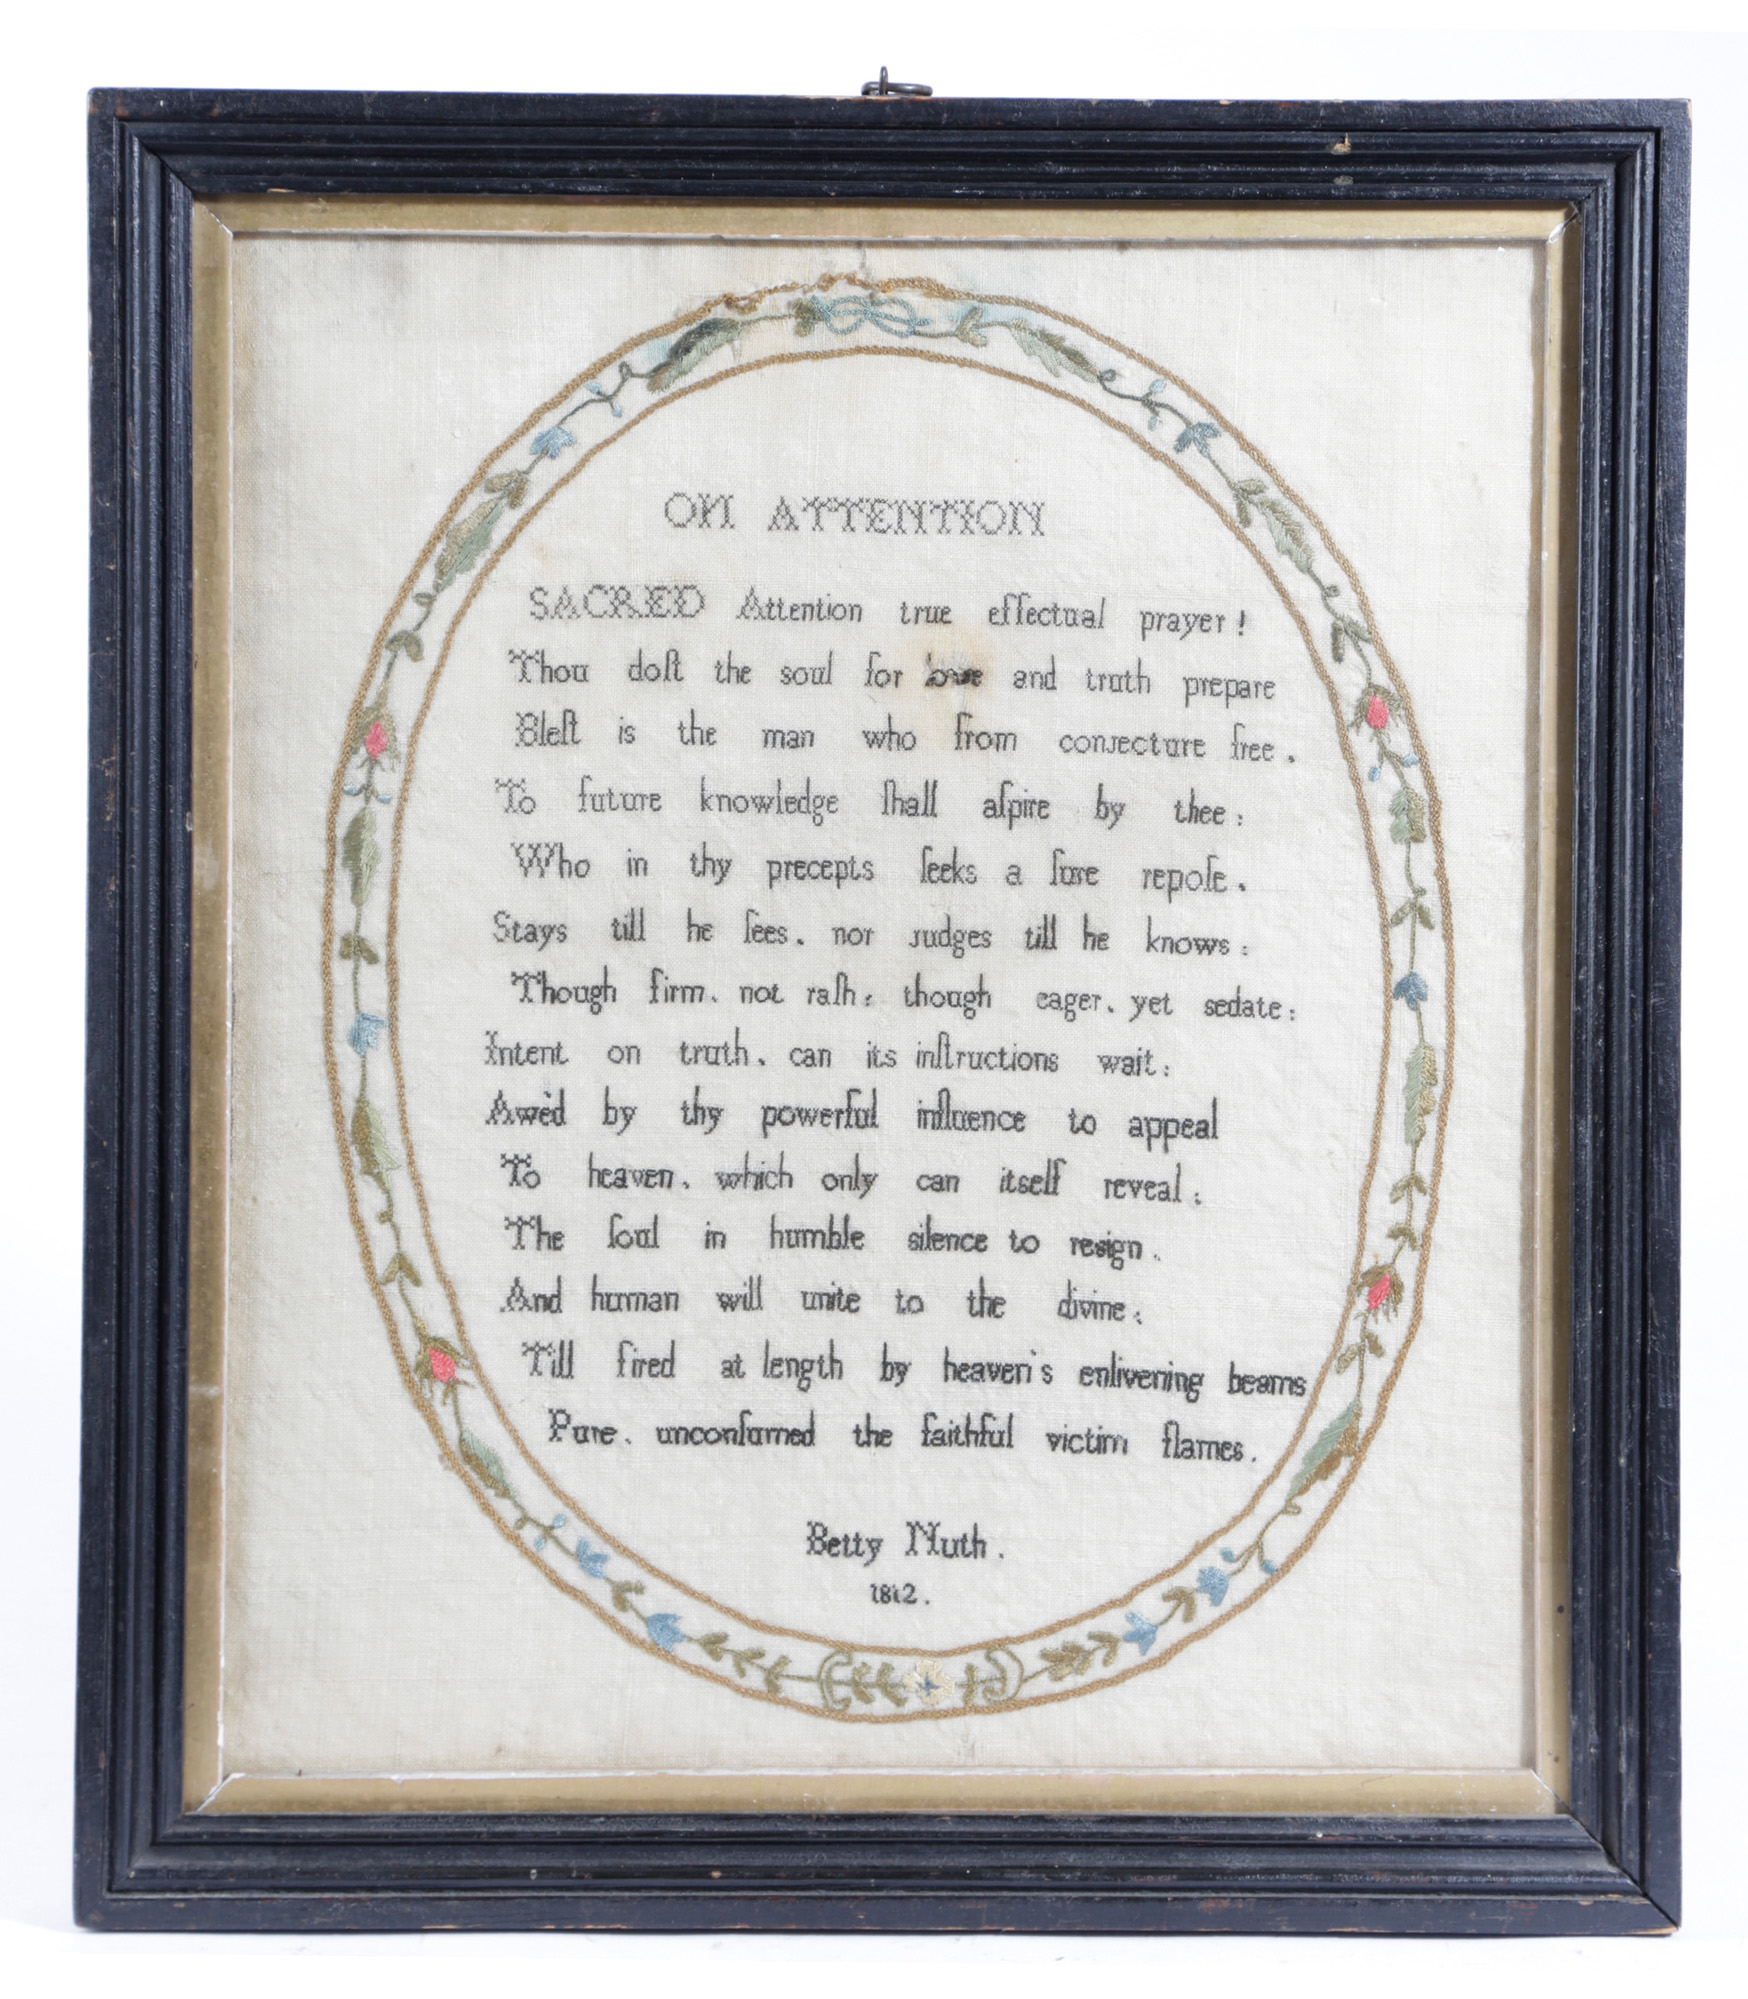 ON ATTENTION
SACRED Attention true effectual prayer!
Thou doſt the soul for love and truth prepare
Bleſt is the man who from conjecture free.
To future knowledge ſhall aſpire by thee:
Who in thy precepts ſeeks a ſure repoſe.
Stays till he ſees. nor judges till he knows:
Though firm. not raſh: though eager. yet sedate:
Intent on truth. can its inſtructions wait:
Awèd by thy powerful influence to appeal
To heaven. which only can itself reveal:
The ſoul in humble silence to resign.
And human will unite to the divine:
Till fired at length by heaven's enlivening beams
Pure. unconſumed the faithful victim flames.
Betty Nuth.
1812.